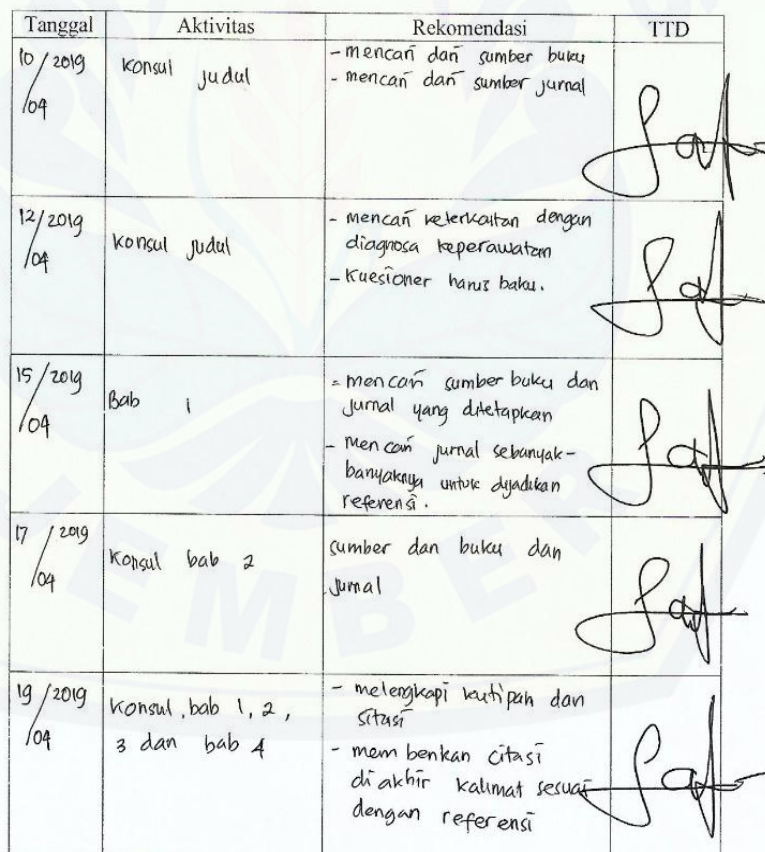 Tanggal Aktivitas Rekomendasi TTD
10/04 2019 Konsul judul - mencari dari sumber buku
- mencari dari sumber jurnal
12/04 2019 Konsul judul - mencari keterkaitan dengan
diagnosa keperawatan
- Kuesioner harus baku.
15/04 2019 Bab 1 - mencari sumber buku dan
jurnal yang ditetapkan
- mencari jurnal sebanyak-
banyaknya untuk dijadikan
referensi.
17/04 2019 Konsul bab 2 sumber dan buku dan
jurnal
19/04 2019 Konsul, bab 1, 2, - melengkapi kutipan dan
3 dan bab 4 sitasi
- memberikan citasi
di akhir kalimat sesuai
dengan referensi
JEMBER